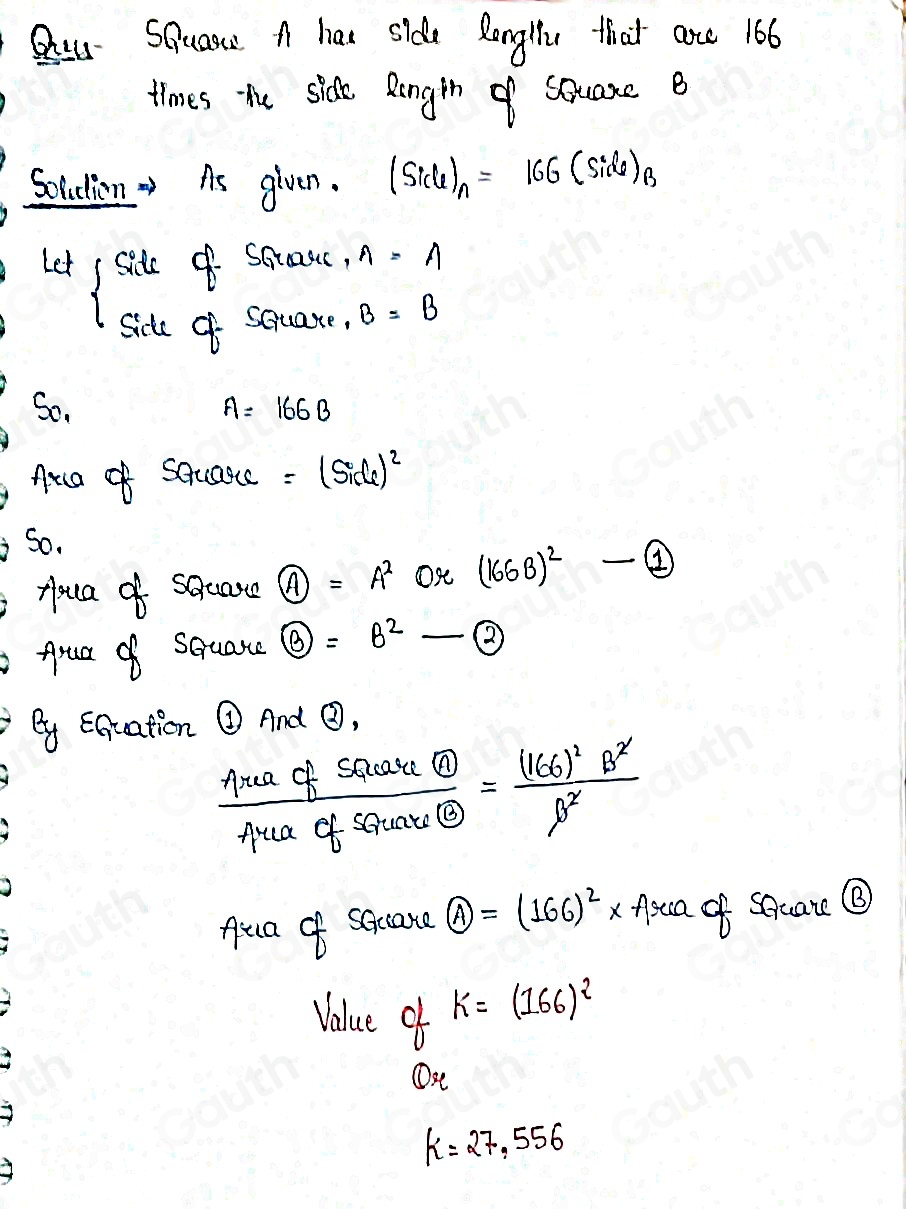 Ques- Square A has side lengths that are 166
times the side length of square B
Solution ⇒ As given. (Side)A = 166 (side)B
Let { Side of Square, A = A
Side of Square, B = B
So, A = 166 B
Area of Square = (Side)²
So.
Area of Square Ⓐ = A² Or (166B)² — ①
Area of Square Ⓑ = B² — ②
By Equation ① And ②,
Area of Square Ⓐ / Area of Square Ⓑ = (166)² B² / B²
Area of Square Ⓐ = (166)² × Area of Square Ⓑ
Value of K = (166)²
Or
K = 27,556
Gauth